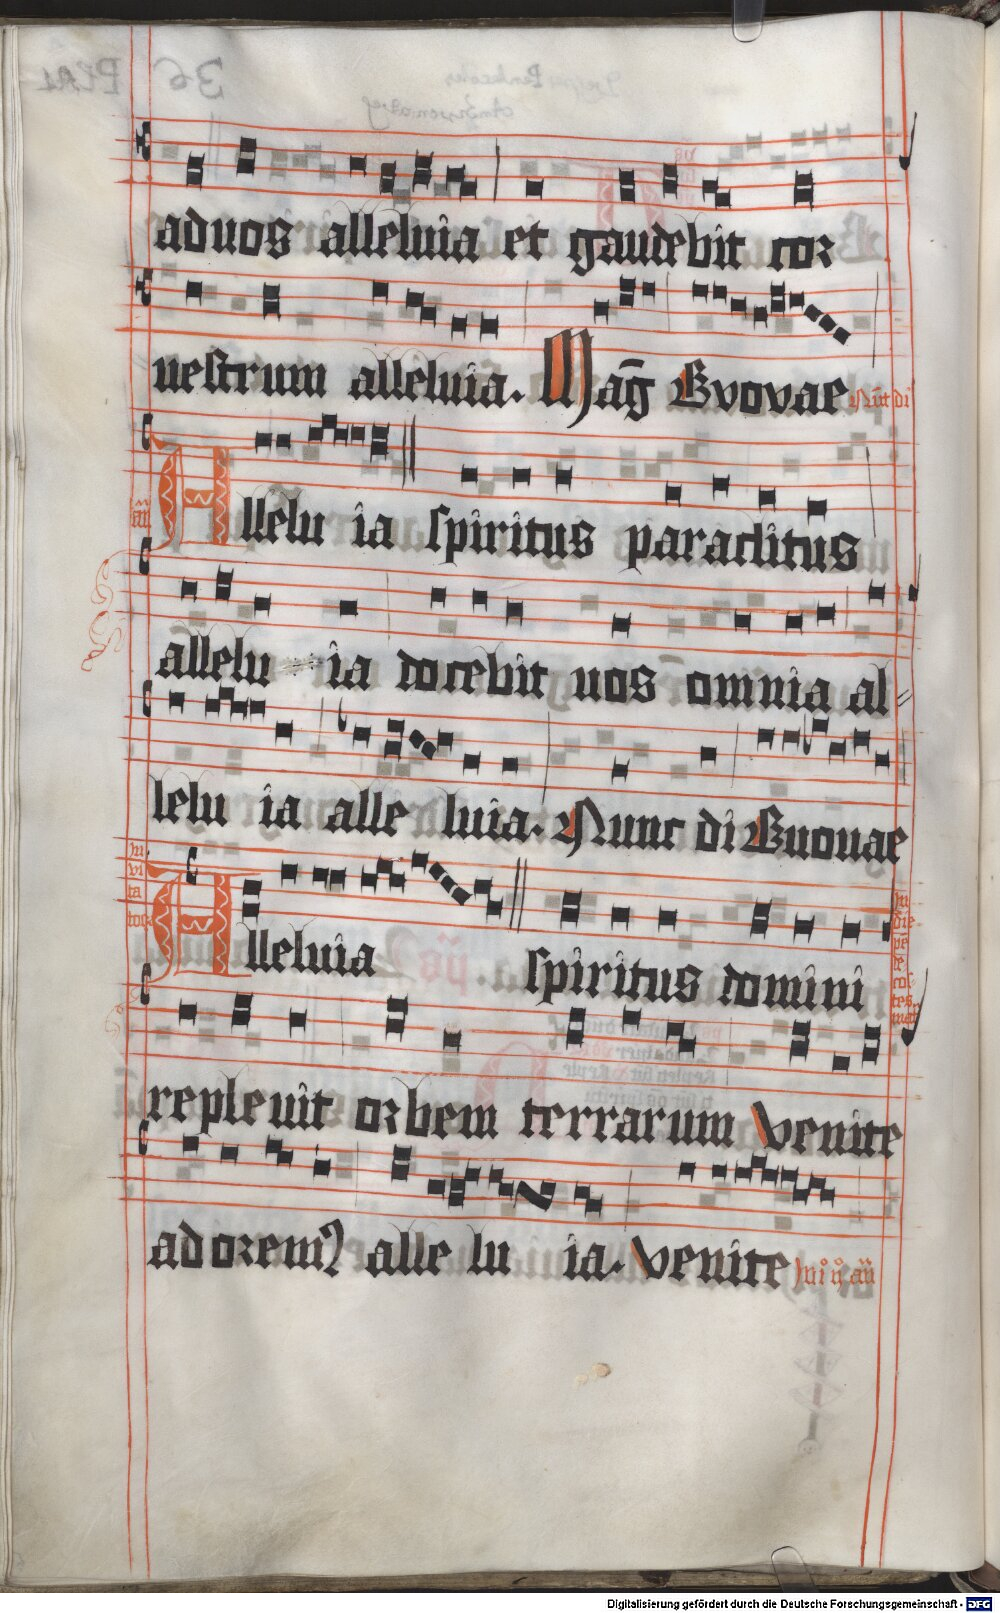 aduos alleluia et gaudebit cor
uestrum alleluia. Mag̅ Evovae Nu̅t di
an̅
Allelu ia spiritus paraclitus
allelu ia docebit uos omnia al⸗
lelu ia alle luia. Nunc di Euouae
in
vi
ta
Alleluia spiritus domini
In
die
pe̅
te
cos
tes
repleuit orbem terrarum Venite
ad orem⁹ alle lu ia. Venite
Digitalisierung gefördert durch die Deutsche Forschungsgemeinschaft - DFG